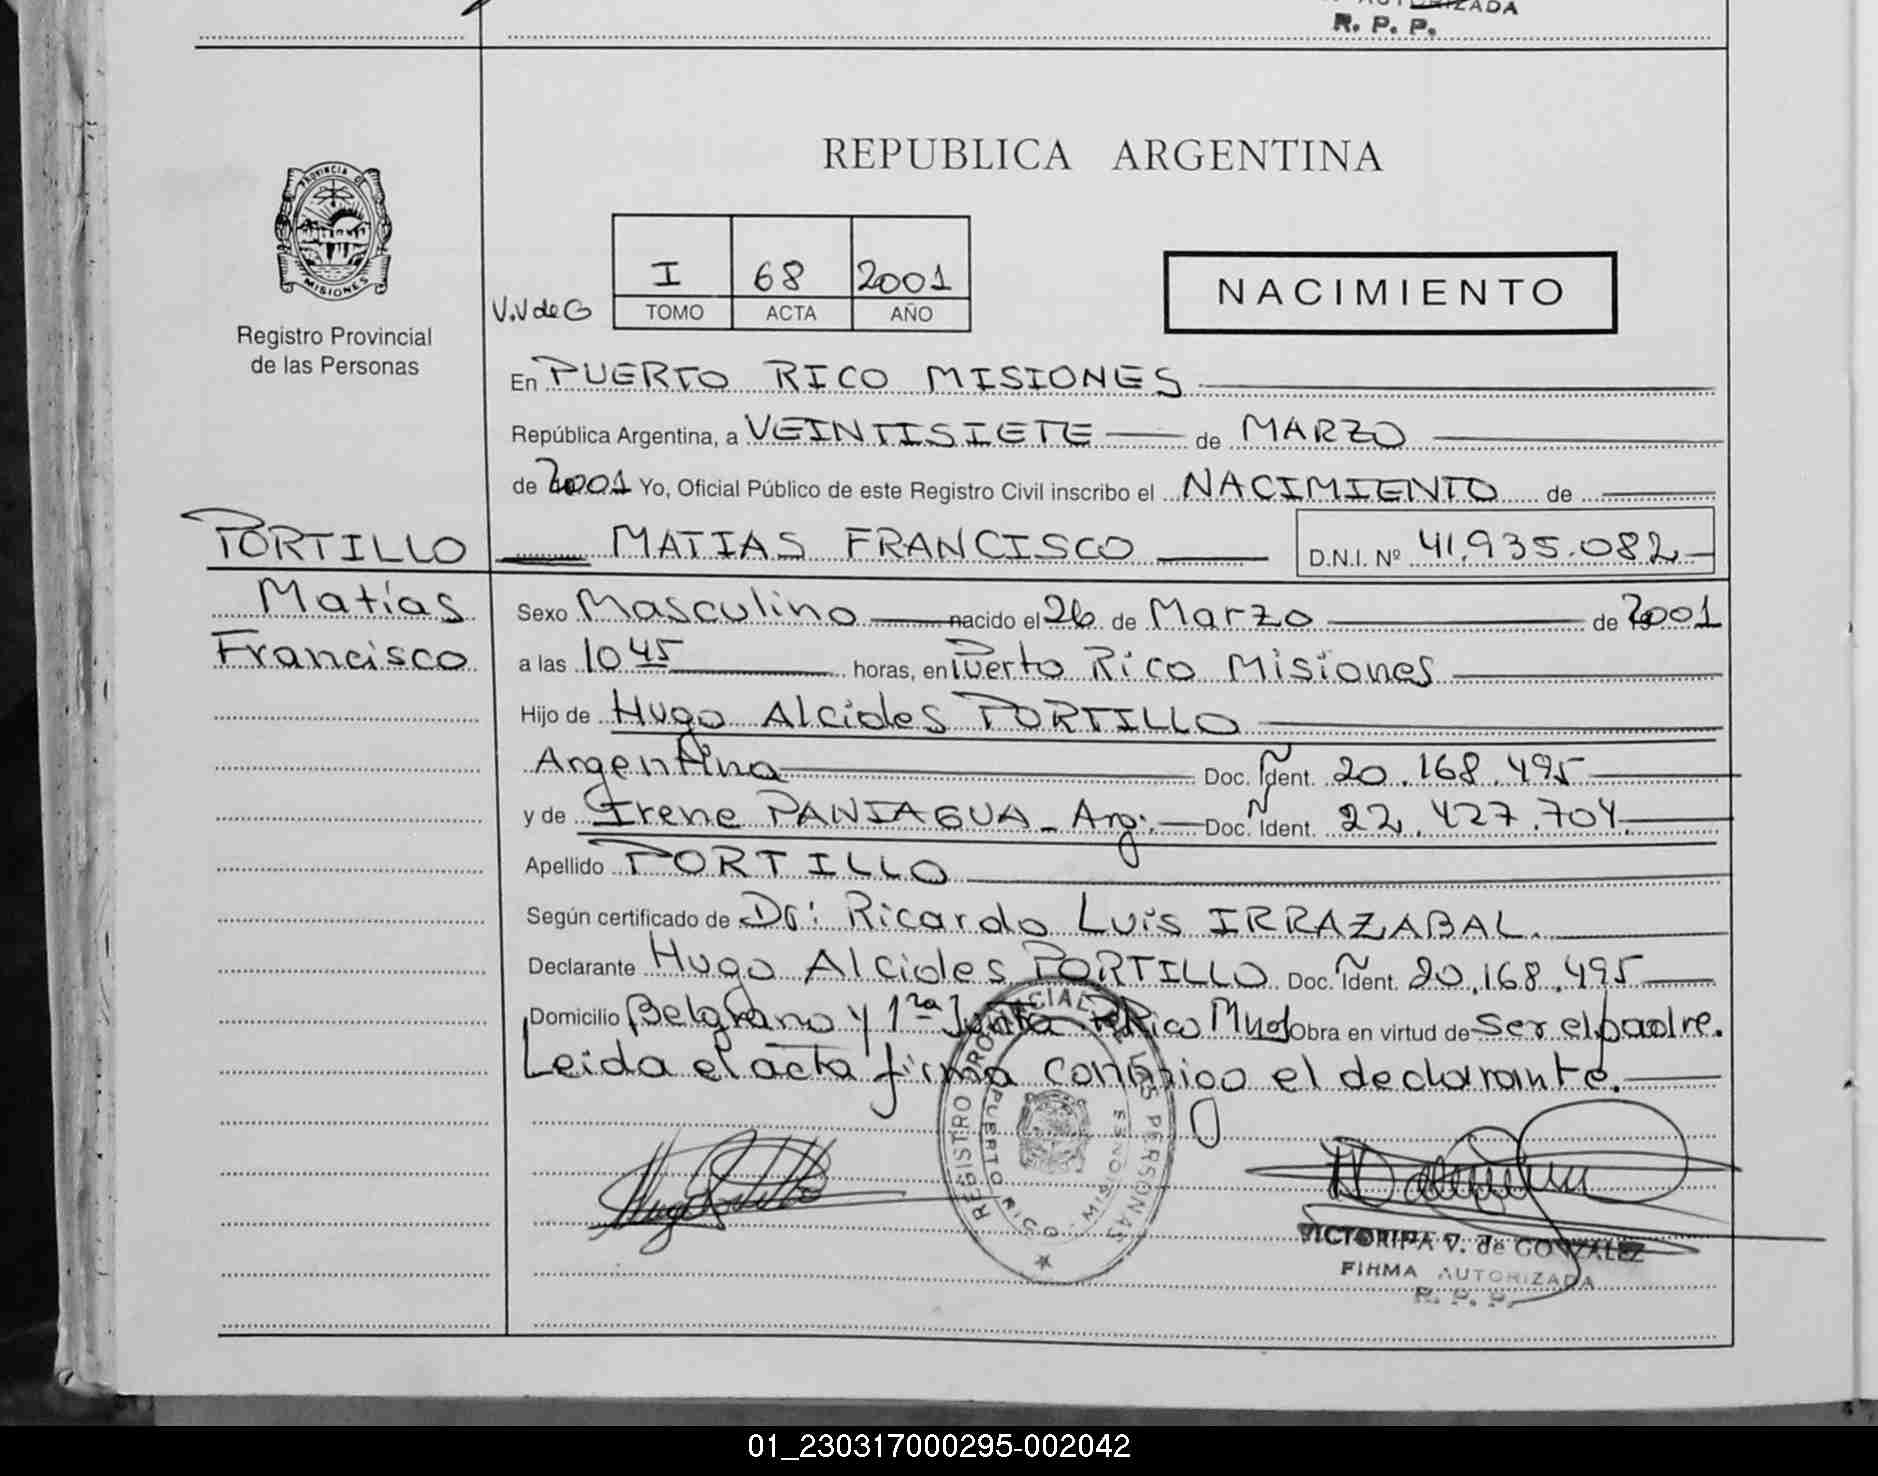 AUTORIZADA
R. P. P.
PROVINCIA DE
MISIONES
Registro Provincial
de las Personas
REPUBLICA ARGENTINA
I 68 2001
V.V de G TOMO ACTA AÑO
NACIMIENTO
En PUERTO RICO MISIONES
República Argentina, a VEINTISIETE de MARZO
de 2001 Yo, Oficial Público de este Registro Civil inscribo el NACIMIENTO de
PORTILLO MATIAS FRANCISCO D.N.I. Nº 41.935.082
Matías
Francisco
Sexo Masculino nacido el 26 de Marzo de 2001
a las 10 45 horas, en Puerto Rico Misiones
Hijo de Hugo Alcides PORTILLO
Argentina Doc. Ident. 20.168.495
y de Irene PANIAGUA - Arg. Doc. Ident. 22.427.704.
Apellido PORTILLO
Según certificado de Dr: Ricardo Luis IRRAZABAL.
Declarante Hugo Alcides PORTILLO Doc. Ident. 20.168.495
Domicilio Belgrano y 1ra Junta P Rico obra en virtud de ser el padre.
Leida el acta firma conmigo el declarante.
REGISTRO PROVINCIAL DE LAS PERSONAS
PUERTO RICO - MISIONES
VICTORINA V. de GONZALEZ
FIRMA AUTORIZADA
R. P. P.
01_230317000295-002042